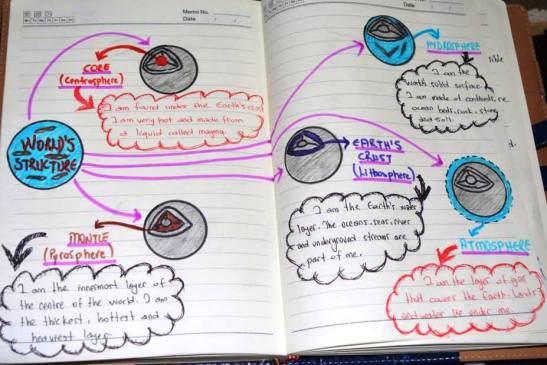 Memo No.
Date / /
CORE
(Centrosphere)
I am found under the Earth's crust
I am very hot and made from
a liquid called magma.
WORLD'S
STRUCTURE
MANTLE
(Pyrosphere)
I am the innermost layer of
the centre of the world. I am
the thickest, hottest and
heaviest layer
Memo No.
Date / /
HYDROSPHERE
I am the
world solid surface.
I am made of continents,
ocean beds, rock, stone
and soil.
EARTH'S
CRUST
(Lithosphere)
I am the Earth's water
layer. The oceans, seas, rivers
and underground streams are
part of me.
ATMOSPHERE
I am the layer of gas
that covers the Earth. Lands
and water lie under me.